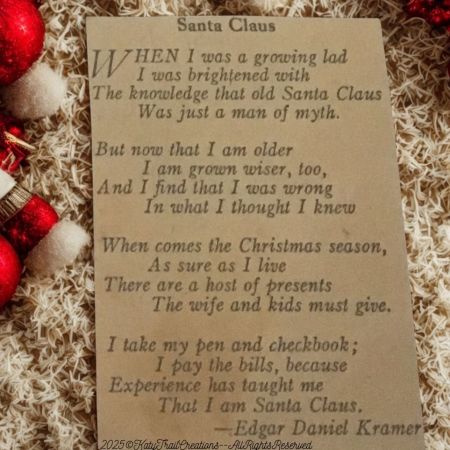 Santa Claus
WHEN I was a growing lad
I was brightened with
The knowledge that old Santa Claus
Was just a man of myth.
But now that I am older
I am grown wiser, too,
And I find that I was wrong
In what I thought I knew
When comes the Christmas season,
As sure as I live
There are a host of presents
The wife and kids must give.
I take my pen and checkbook;
I pay the bills, because
Experience has taught me
That I am Santa Claus.
—Edgar Daniel Kramer
2025©KatyTrailCreations--AllRightsReserved